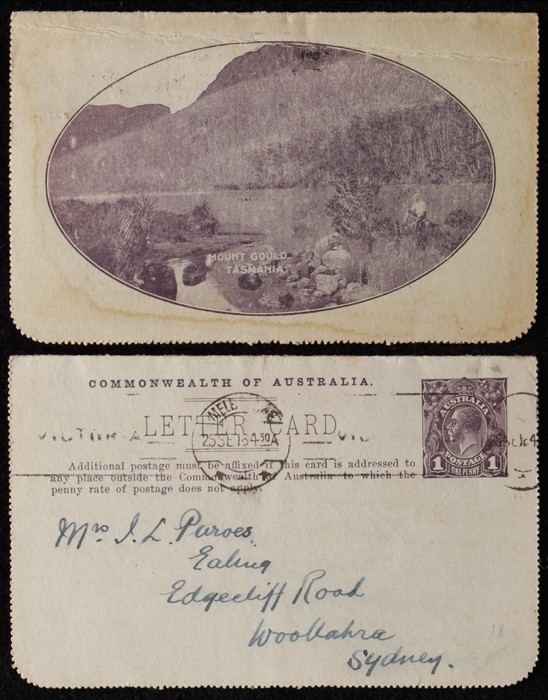 MOUNT GOULD
TASMANIA
COMMONWEALTH OF AUSTRALIA.
LETTER CARD
Additional postage must be affixed if this card is addressed to
any place outside the Commonwealth of Australia to which the
penny rate of postage does not apply.
AUSTRALIA
POSTAGE
1 ONE PENNY 1
VICTORIA
Mrs J. L. Purves
Ealing
Edgecliff Road
Woollahra
Sydney.